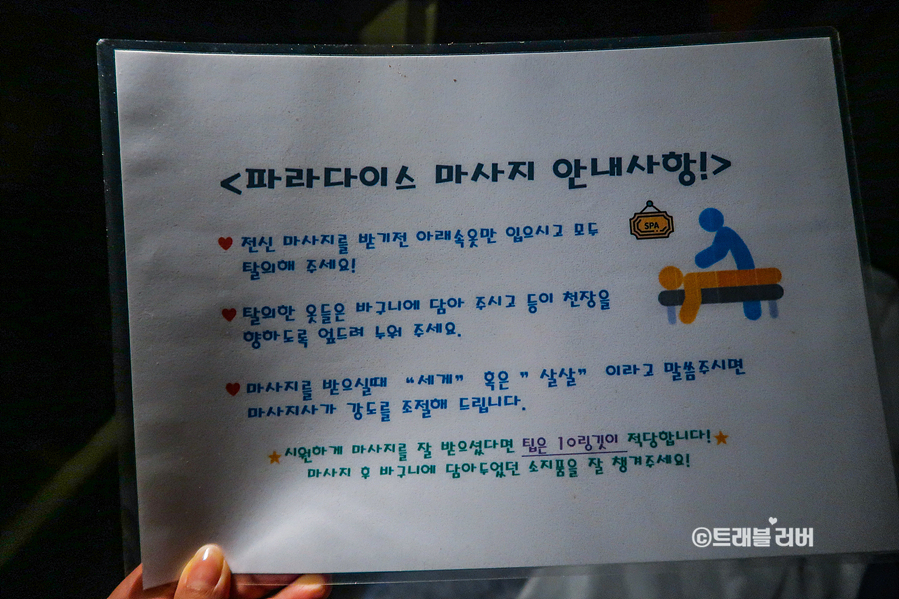 <파라다이스 마사지 안내사항!>
SPA
전신 마사지를 받기전 아래속옷만 입으시고 모두
탈의해 주세요!
탈의한 옷들은 바구니에 담아 주시고 등이 천장을
향하도록 엎드려 누워 주세요.
마사지를 받으실때 “세게” 혹은 ” 살살” 이라고 말씀주시면
마사지사가 강도를 조절해 드립니다.
시원하게 마사지를 잘 받으셨다면 팁은 10링깃이 적당합니다!
마사지 후 바구니에 담아두었던 소지품을 잘 챙겨주세요!
©트래블 러버